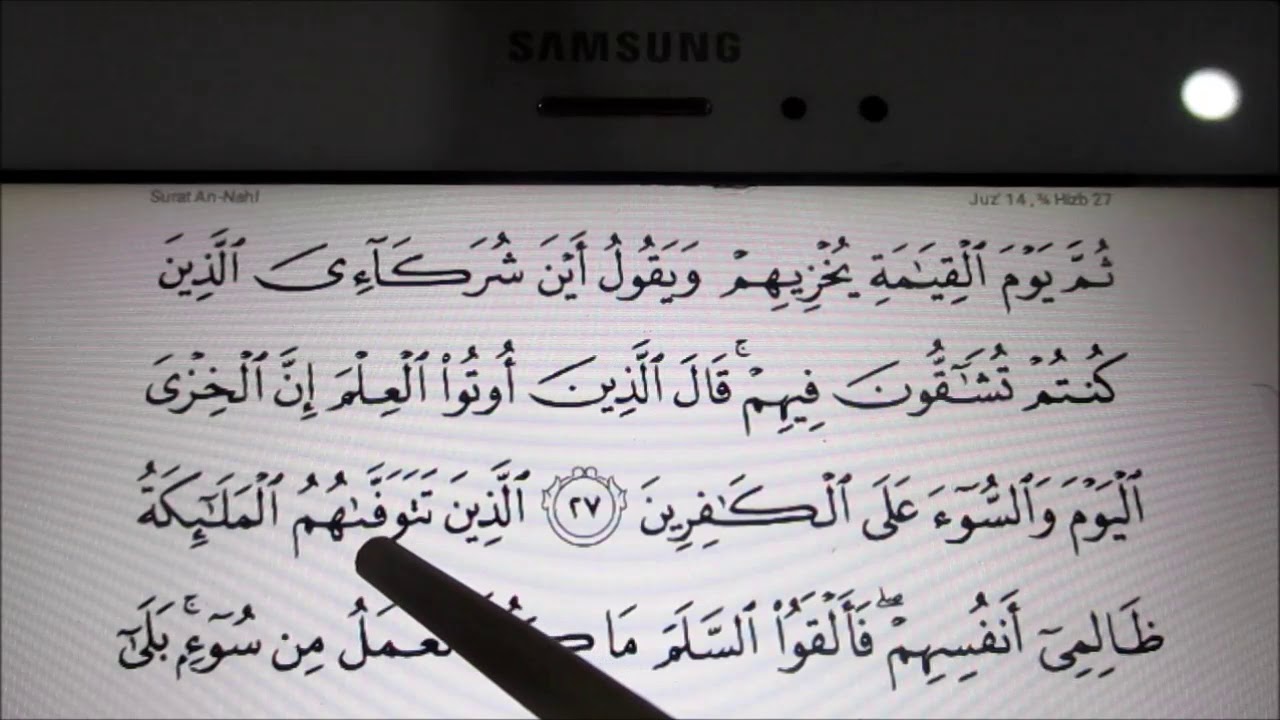 SAMSUNG
Surat An-Nahl
Juz' 14 , ¾ Hizb 27
ثُمَّ يَوْمَ ٱلْقِيَـٰمَةِ يُخْزِيهِمْ وَيَقُولُ أَيْنَ شُرَكَآءِىَ ٱلَّذِينَ
كُنتُمْ تُشَـٰٓقُّونَ فِيهِمْ ۚ قَالَ ٱلَّذِينَ أُوتُوا۟ ٱلْعِلْمَ إِنَّ ٱلْخِزْىَ
ٱلْيَوْمَ وَٱلسُّوٓءَ عَلَى ٱلْكَـٰفِرِينَ ٢٧ ٱلَّذِينَ تَتَوَفَّىٰهُمُ ٱلْمَلَـٰٓئِكَةُ
ظَالِمِىٓ أَنفُسِهِمْ ۖ فَأَلْقَوُا۟ ٱلسَّلَمَ مَا مِن سُوٓءٍۭ ۚ بَلَىٰٓ